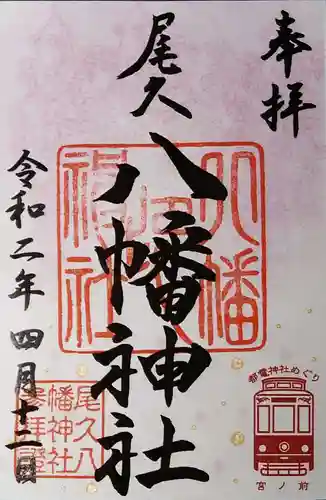 奉拝
尾久
八幡神社
令和二年四月十二日
八幡神社
尾久八
幡神社
奉拝證
都電神社めぐり
宮ノ前